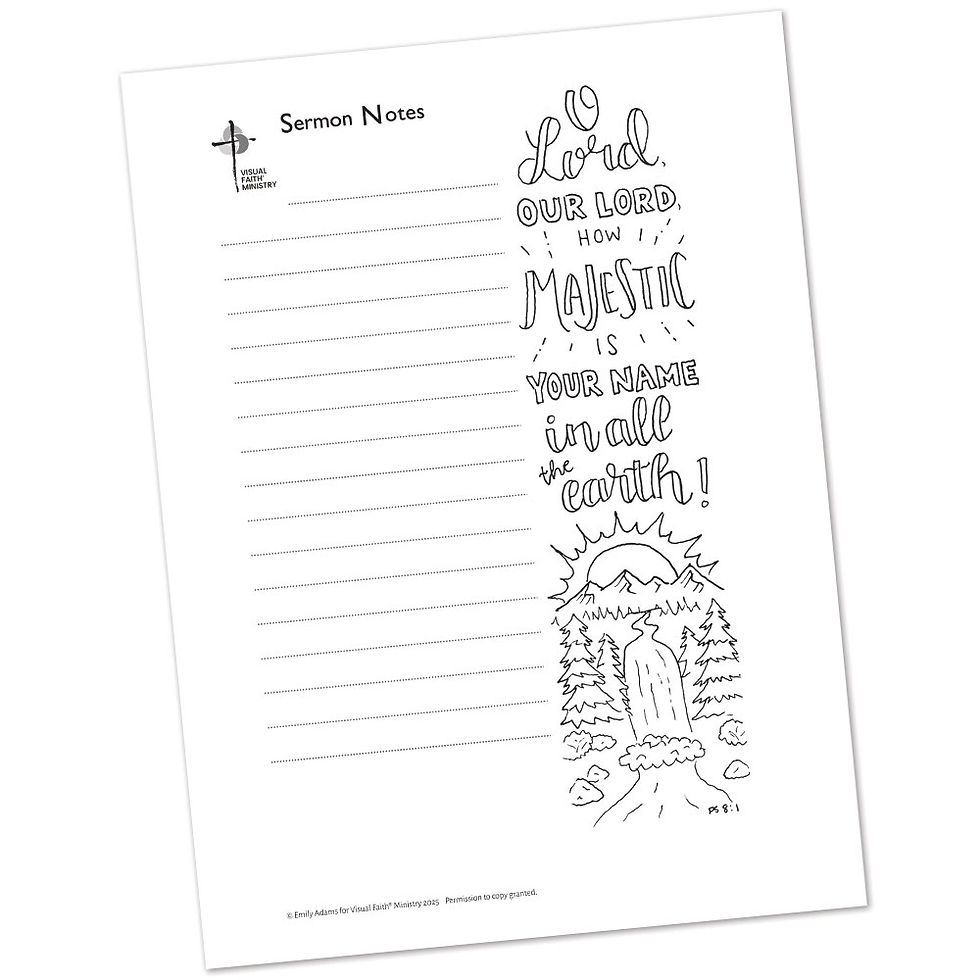 Sermon Notes
VISUAL
FAITH®
MINISTRY
O
Lord,
OUR LORD,
HOW
MAJESTIC
IS
YOUR NAME
in all
the
earth!
PS 8:1
© Emily Adams for Visual Faith® Ministry 2025 Permission to copy granted.